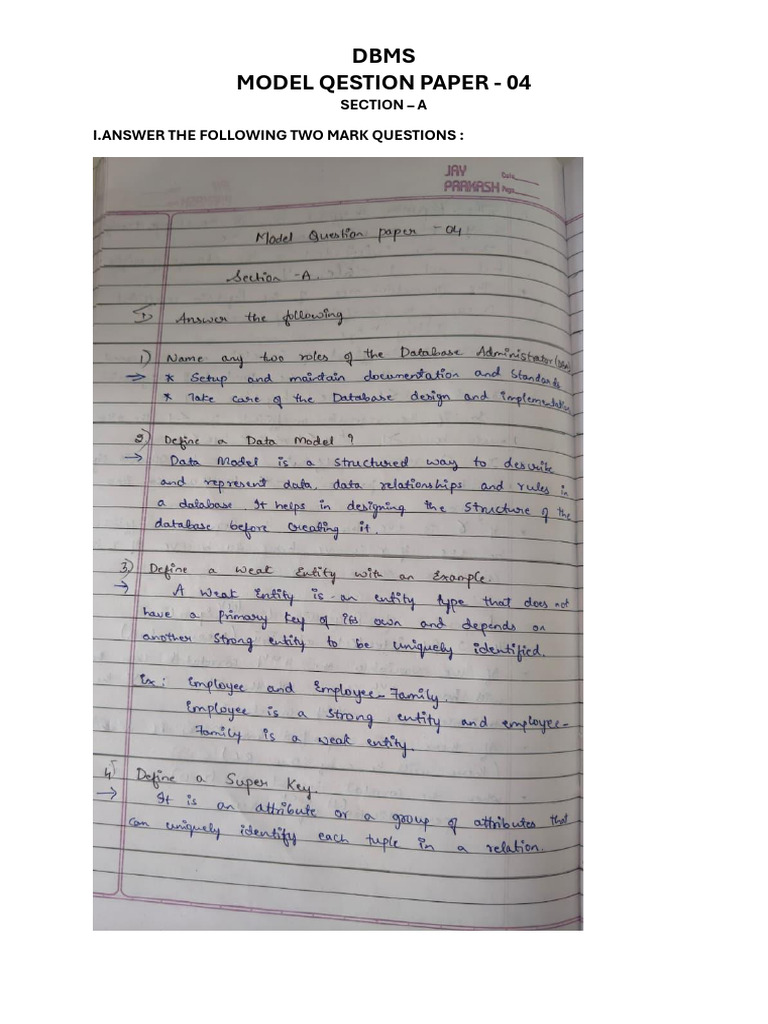 DBMS
MODEL QESTION PAPER - 04
SECTION – A
I.ANSWER THE FOLLOWING TWO MARK QUESTIONS :
JAY
PRAKASH
Date
Page
Model Question paper - 04
Section - A.
I) Answer the following
1) Name any two roles of the Database Administrator (DBA)
⇒ * Setup and maintain documentation and standards.
* Take care of the Database design and implementation
2) Define a Data Model ?
→ Data Model is a structured way to describe
and represent data, data relationships and rules in
a database. It helps in designing the structure of the
database before creating it.
3) Define a weak Entity with an Example.
→ A weak Entity is an entity type that does not
have a primary key of its own and depends on
another strong entity to be uniquely identified.
Ex: Employee and Employee-Family.
Employee is a strong entity and employee-
Family is a weak entity.
4) Define a Super Key.
→ It is an attribute or a group of attributes that
can uniquely identify each tuple in a relation.